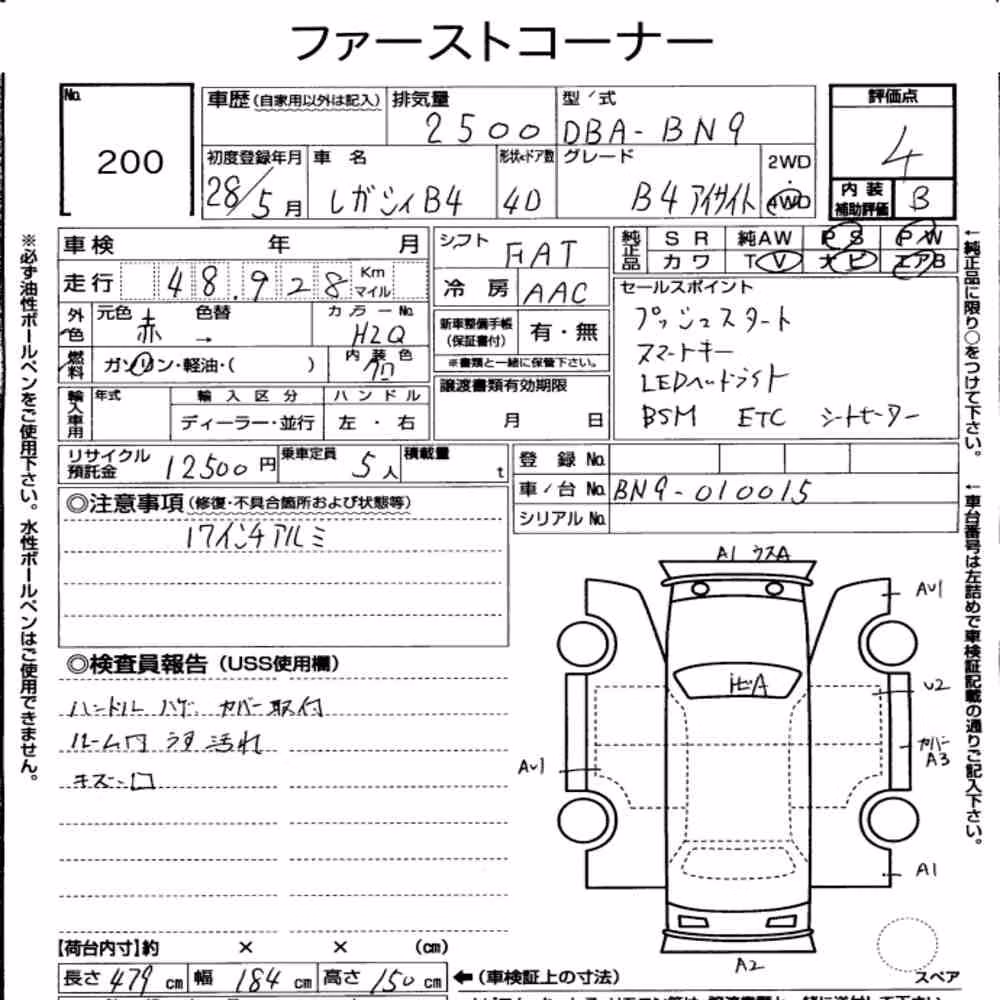 ファーストコーナー
No. 200
車歴 (自家用以外は記入) 排気量 2500 型/式 DBA-BN9
評価点 4
初度登録年月 28/5月 車名 レガシィB4 形状ドア数 4D グレード B4 アイサイト 2WD・4WD
内装補助評価 B
車検 年 月
走行 48.928 Km マイル
シフト FAT
冷房 AAC
純正品 SR 純AW PS PW
カワ TV ナビ エアB
外色 元色 赤 色替 → カラーNo. H2Q
燃料 ガソリン・軽油・( ) 内装色 クロ
新車整備手帳(保証書付) 有・無
※書類と一緒に保管下さい。
譲渡書類有効期限
月 日
セールスポイント
プッシュスタート
スマートキー
LEDヘッドライト
BSM ETC シートヒーター
輸入車用 年式 輸入区分 ハンドル
ディーラー・並行 左・右
リサイクル預託金 12500円 乗車定員 5人 積載量 t
登録No.
車/台No. BN9-010015
シリアルNo.
◎注意事項 (修復・不具合箇所および状態等)
17インチアルミ
◎検査員報告 (USS使用欄)
ハンドル ハゲ. カバー取付
ルーム内 うす汚れ
キズ・凹
A1 ウスA
AU1
トビA
U2
カバー A3
AU1
A1
A2
スペア
【荷台内寸】約 × × (cm)
長さ 479 cm 幅 184 cm 高さ 150 cm ←(車検証上の寸法)
※必ず油性ボールペンをご使用下さい。水性ボールペンはご使用できません。
←純正品に限り○をつけて下さい。
←車台番号は左詰めで車検証記載の通りご記入下さい。